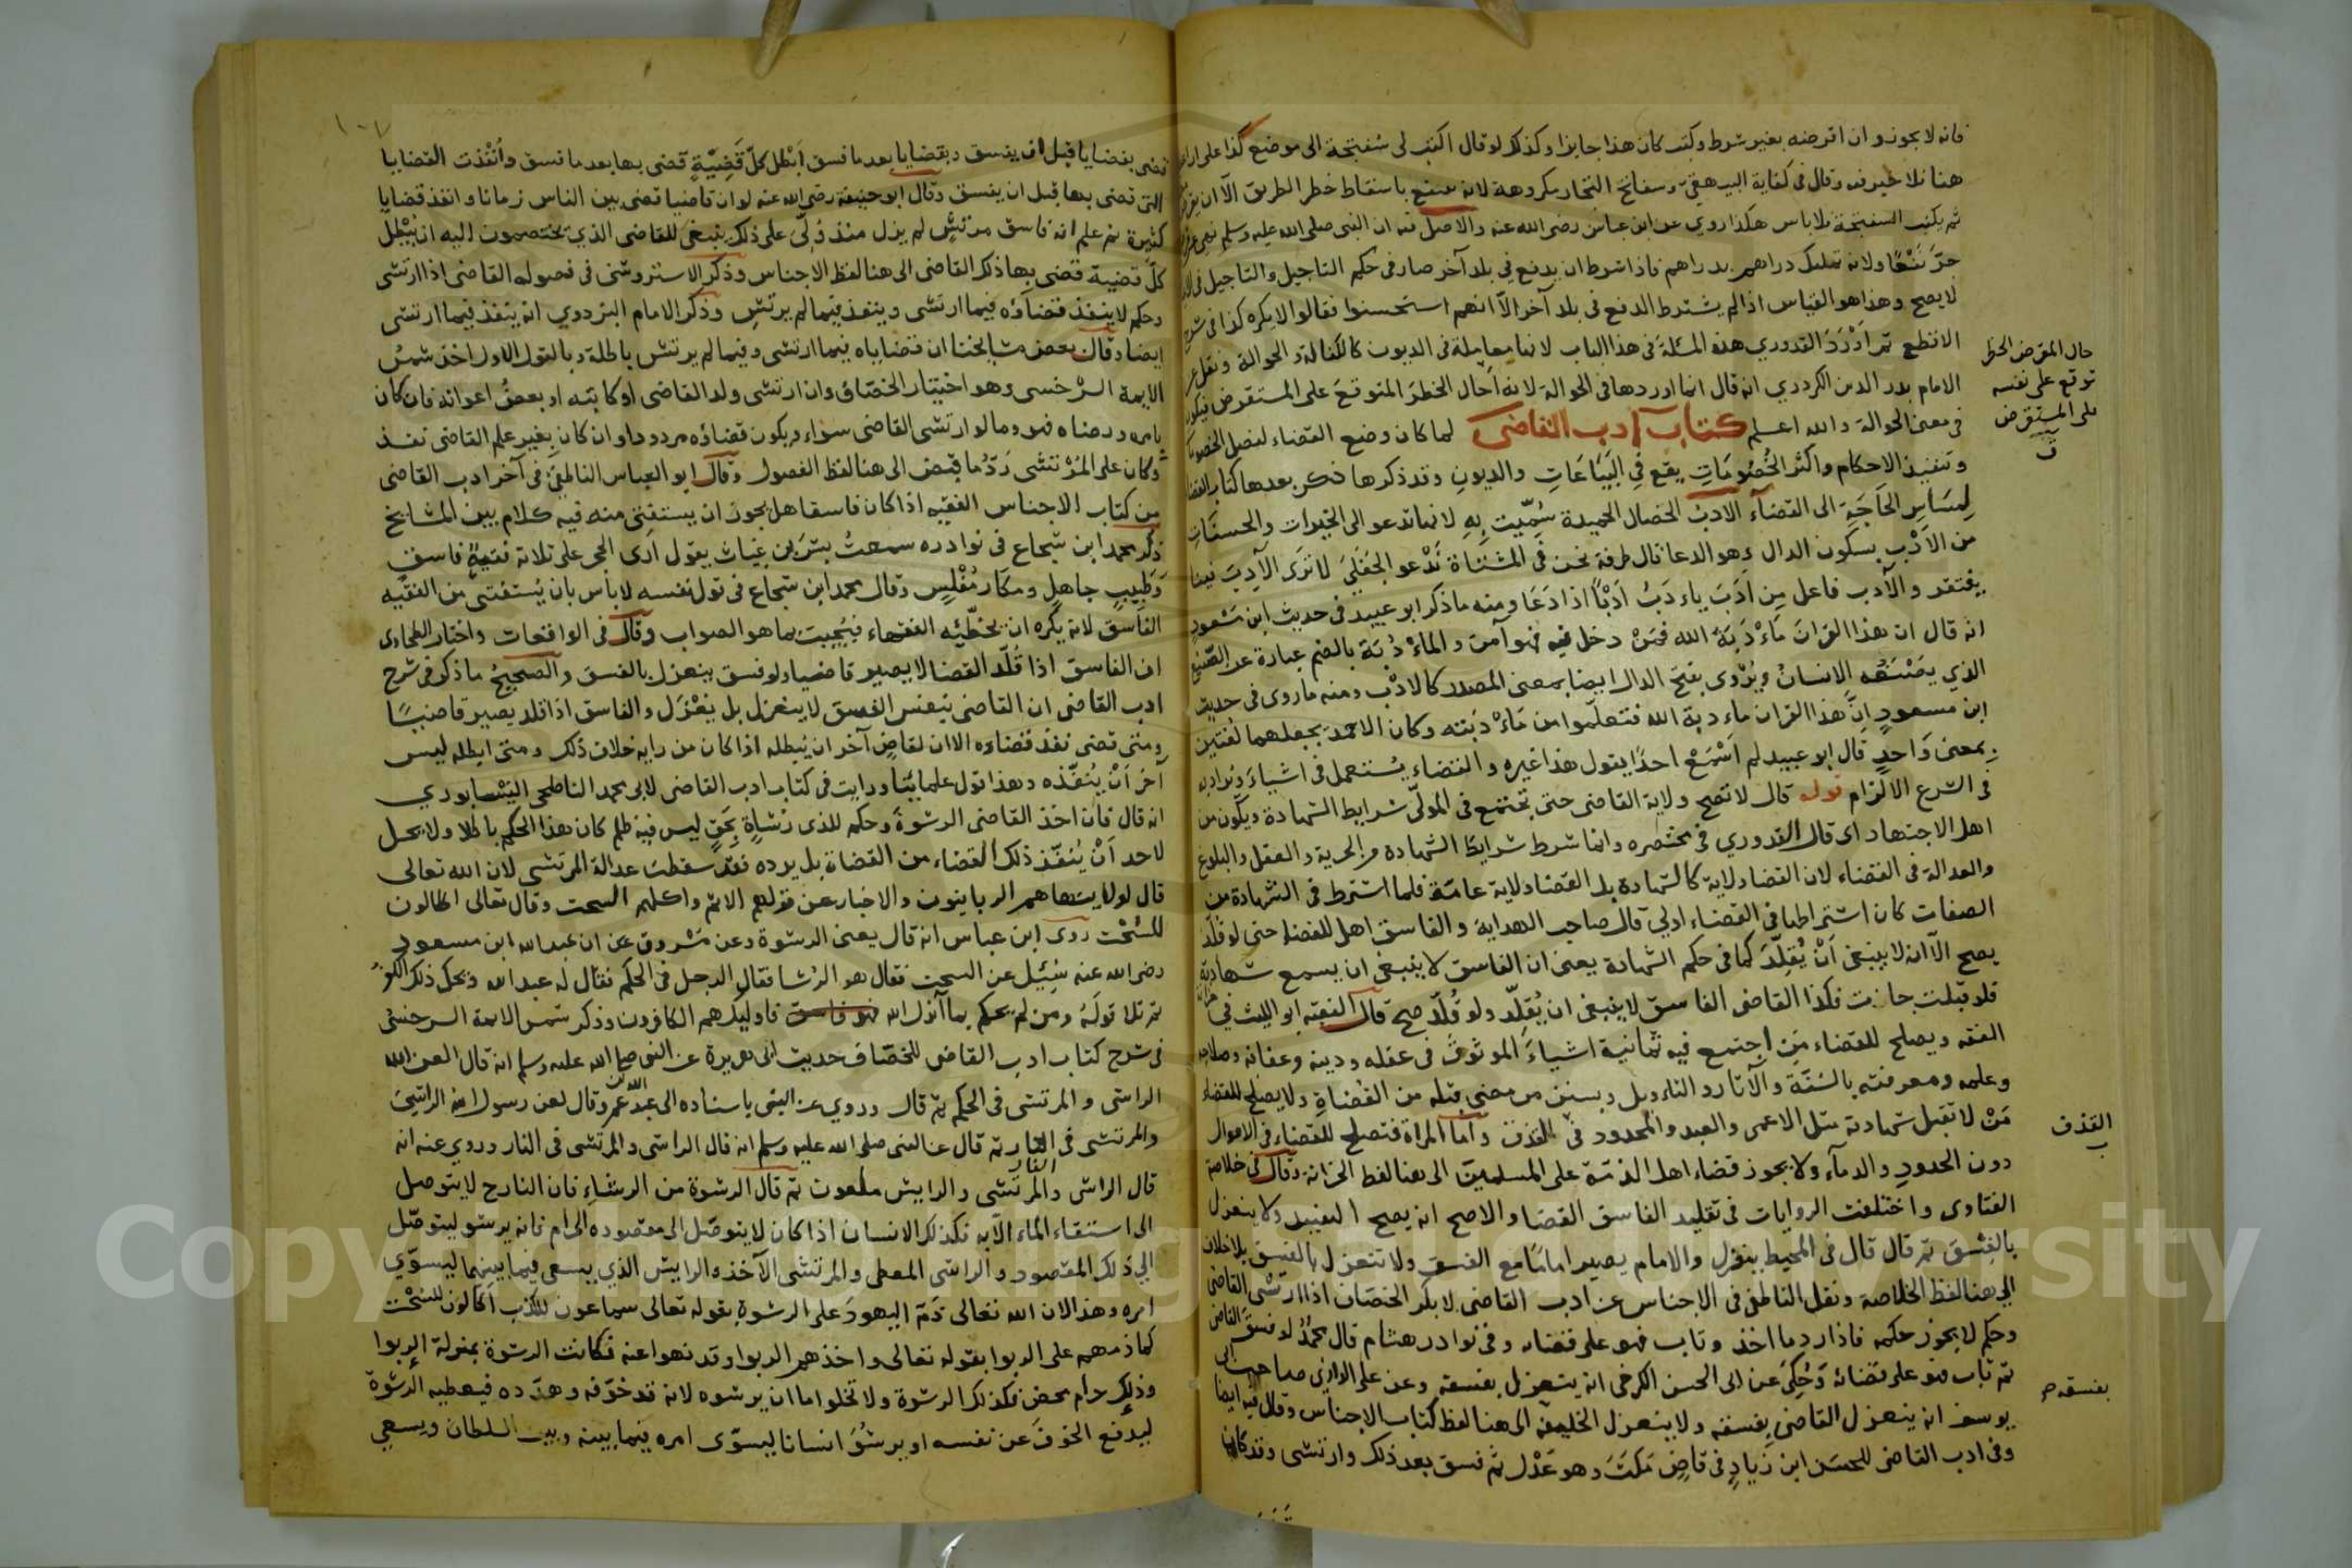 فانه لا يجوز وان اقرضه بغير شرط وكتب كان هذا جايزا وكذلك لو قال اكتب لى سفتجة الى موضع كذا على ان
هنا فلا خير فيه وقال فى كفاية البيهقى وسفاتج التجار مكروهة لانه ينتفع باسقاط خطر الطريق الا ان
ثم يكتب السفتجة فلا باس هكذا روي عن ابن عباس رضى الله عنه والاصل فيه ان النبى صلى الله عليه وسلم نهى عن قرض
جرّ نفعًا ولانه تمليك دراهم بدراهم فاذا شرط ان يدفع فى بلد آخر صار فى حكم التاجيل والتاجيل فى
لا يصح وهذا هو القياس اذا لم يشترط الدفع فى بلد آخر الا انهم استحسنوا فقالوا لا يكره كذا فى شرح
الاقطع ثم اورد القدوري هذه المسئلة فى هذا الباب لانها معاملة فى الديون كالكفالة والحوالة ونقل عن
الامام بدر الدين الكردري انه قال انما اوردها فى الحوالة لانه احال الخطر المتوقع على المستقرض فيكون
فى معنى الحوالة والله اعلم كتاب ادب القاضى لما كان وضع القضاء لفصل الخصومات
وتنفيذ الاحكام واكثر الخصومات يقع فى البياعات والديون وقد ذكرها ذكر بعدها كتاب القضا
لمساس الحاجة الى القضاء الادب الخصال الحميدة سميت به لانها تدعو الى الخيرات والحسنات
من الادب بسكون الدال وهو الدعا قال طرفة نحن فى المشتاة ندعو الجفلى لا ترى الآدب فينا
ينتقر والآدب فاعل من ادب ياءدب ادبًا اذا دعا ومنه ما ذكر ابو عبيد فى حديث ابن مسعود
انه قال ان هذا القران ماءدبة الله فمن دخل فيه فهو آمن والماءدبة بالضم عبارة عن الصنيع
الذي يصنعه الانسان ويروى بفتح الدال ايضا بمعنى المصدر كالادب ومنه ما روى فى حديث
ابن مسعود ان هذا القران ماءدبة الله فتعلموا من ماءدبته وكان الاحمر يجعلهما لغتين
بمعنى واحد قال ابو عبيد لم اسمع احدًا يقول هذا غيره والقضاء يستعمل فى اشياء ويراد به
فى الشرع الالزام قوله قال لا تصح ولاية القاضى حتى تجتمع فى المولى شرايط الشهادة ويكون من
اهل الاجتهاد اى قال القدوري فى مختصره وانما شرط شرايط الشهادة من الحرية والعقل والبلوغ
والعدالة فى القضاء لان القضا ولاية كالشهادة بل القضا ولاية عامة فلما اشترط فى الشهادة من
الصفات كان اشتراطها فى القضاء اولى قال صاحب الهداية والفاسق اهل للقضاء حتى لو قلد
يصح الا انه لا ينبغى ان يقلد كما فى حكم الشهادة يعنى ان الفاسق لا ينبغى ان يسمع شهادته
فلو قبلت جازت فكذا القاضى الفاسق لا ينبغى ان يقلد ولو قلد صح قال الفقيه ابو الليث فى خزانة
الفقه ويصلح للقضاء من اجتمع فيه ثمانية اشياء الموثوق فى عقله ودينه وعفافه وصلاحه
وعلمه ومعرفته بالسنة والآثار والتاويل وبسنن من مضى قبله من القضاة ولا يصلح للقضاء
من لا تقبل شهادته مثل الاعمى والعبد والمحدود فى القذف واما المراة فتصلح للقضاء فى الاموال
دون الحدود والدماء ولا يجوز قضاء اهل الذمة على المسلمين الى هنا لفظ الخزانة وقال فى خلاصة
الفتاوى واختلفت الروايات فى تقليد الفاسق القضا والاصح انه يصح التقليد ولا ينعزل
بالفسق ثم قال قال فى المحيط ينعزل والامام يصير امامًا مع الفسق ولا تنعزل بالفسق بلا خلاف
الى هنا لفظ الخلاصة ونقل الناطفى فى الاجناس عن ادب القاضى لابى بكر الخصاف اذا ارتشى القاضى
وحكم لا يجوز حكمه فاذا رد ما اخذ وتاب فهو على قضائه وفى نوادر هشام قال محمد لو فسق القاضى
ثم تاب فهو على قضائه وحكى عن ابى الحسن الكرخى انه ينعزل بفسقه وعن على الرازى صاحب ابى
يوسف انه ينعزل القاضى بفسقه ولا ينعزل الخليفة الى هنا لفظ كتاب الاجناس وقال فيه ايضا
وفى ادب القاضى للحسن ابن زياد فى قاض مكث وهو عدل ثم فسق بعد ذلك وارتشى وقد كان
حال المقرض الخطر
توقع على نفسه
على المستقرض
القذف
بفسقه
قضى بقضايا قبل ان يفسق وبقضايا بعد ما فسق ابطل كل قضية قضى بها بعد ما فسق وانفذت القضايا
التى قضى بها قبل ان يفسق وقال ابو حنيفة رضى الله عنه لو ان قاضيا قضى بين الناس زمانا وانفذ قضايا
كثيرة ثم علم انه فاسق مرتش لم يزل منذ ولى على ذلك ينبغى للقاضى الذي يختصمون اليه ان يبطل
كل قضية قضى بها ذلك القاضى الى هنا لفظ الاجناس وذكر الاستروشنى فى فصوله القاضى اذا ارتشى
وحكم لا ينفذ قضاؤه فيما ارتشى وينفذ فيما لم يرتش وذكر الامام البزدوي انه ينفذ فيما ارتشى
ايضا وقال بعض مشايخنا ان قضاياه فيما ارتشى وفيما لم يرتش باطلة وبالقول الاول اخذ شمس
الايمة السرخسى وهو اختيار الخصاف وان ارتشى ولد القاضى او كاتبه او بعض اعوانه فان كان
بامره ورضاه فهو وما لو ارتشى القاضى سواء ويكون قضاؤه مردودا وان كان بغير علم القاضى نفذ
وكان على المرتشى رد ما قبض الى هنا لفظ الفصول وقال ابو العباس الناطفى فى آخر ادب القاضى
من كتاب الاجناس الفقيه اذا كان فاسقا هل يجوز ان يستفتى منه فيه كلام بين المشايخ
ذكر محمد ابن شجاع فى نوادره سمعت بشر بن غياث يقول ارى الحجر على ثلاثة فقيه فاسق
وطبيب جاهل ومكار مفلس وقال محمد ابن شجاع فى قول نفسه لا بأس بان يستفتى من الفقيه
الفاسق لانه يكره ان يخطئه الفقهاء فيجيب بما هو الصواب وقال فى الواقعات واختار الطحاوى
ان الفاسق اذا قلد القضا لا يصير قاضيا ولو فسق ينعزل بالفسق والصحيح ما ذكر فى شرح
ادب القاضى ان القاضى بنفس الفسق لا ينعزل بل يعزل والفاسق اذا قلد يصير قاضيًا
ومتى قضى نفذ قضاؤه الا ان لقاض آخر ان يبطله اذا كان من رايه خلاف ذلك ومتى ابطله ليس
آخر ان ينفذه وهذا قول علمايئنا ورايت فى كتاب ادب القاضى لابى محمد الناطحى النيسابوري
انه قال فان اخذ القاضى الرشوة وحكم للذى رشاه بحق ليس فيه ظلم كان هذا الحكم باطلا ولا يحل
لاحد ان ينفذ ذلك القضاء من القضاة بل يرده فقد سقطت عدالة المرتشى لان الله تعالى
قال لولا ينهاهم الربانيون والاحبار عن قولهم الاثم واكلهم السحت وقال تعالى اكالون
للسحت روى ابن عباس انه قال يعنى الرشوة وعن مسروق عن ان عبد الله ابن مسعود
رضى الله عنه سئل عن السحت فقال هو الرشا فقال الرجل فى الحكم فقال له عبد الله ويحك ذلك الكفر
ثم تلا قوله ومن لم يحكم بما أنزل الله فاوليك هم الكافرون وذكر شمس الائمة السرخسى
فى شرح كتاب ادب القاضى للخصاف حديث ابى هريرة عن النبى صلى الله عليه وسلم انه قال لعن الله
الراشى والمرتشى فى الحكم ثم قال وروي عن البتى باسناده الى عبد الله بن عمر وقال لعن رسول الله الراشى
والمرتشى فى النار ثم قال عن النبى صلى الله عليه وسلم انه قال الراشى والمرتشى فى النار وروي عنه انه
قال الراشى والمرتشى والرايش ملعون ثم قال الرشوة من الرشاء فان النازح لا يتوصل
الى استقاء الماء الا به فكذلك الانسان اذا كان لا يتوصل الى مقصوده الحرام فانه يرشو ليتوصل
الى ذلك المقصود والراشى المعطى والمرتشى الآخذ والرايش الذي يسعى فيما بينهما ليسوي
امره وهذا لان الله تعالى ذم اليهود على الرشوة بقوله تعالى سماعون للكذب اكالون للسحت
كما ذمهم على الربوا بقوله تعالى واخذهم الربوا وقد نهوا عنه فكانت الرشوة بمنزلة الربوا
وذلك حرام محض فكذلك الرشوة ولا تخلوا اما ان يرشوه لانه قد خوفه وهدده فيعطيه الرشوة
ليدفع الخوف عن نفسه او يرشو انسانا ليسوى امره فيما بينه وبين السلطان ويسعى